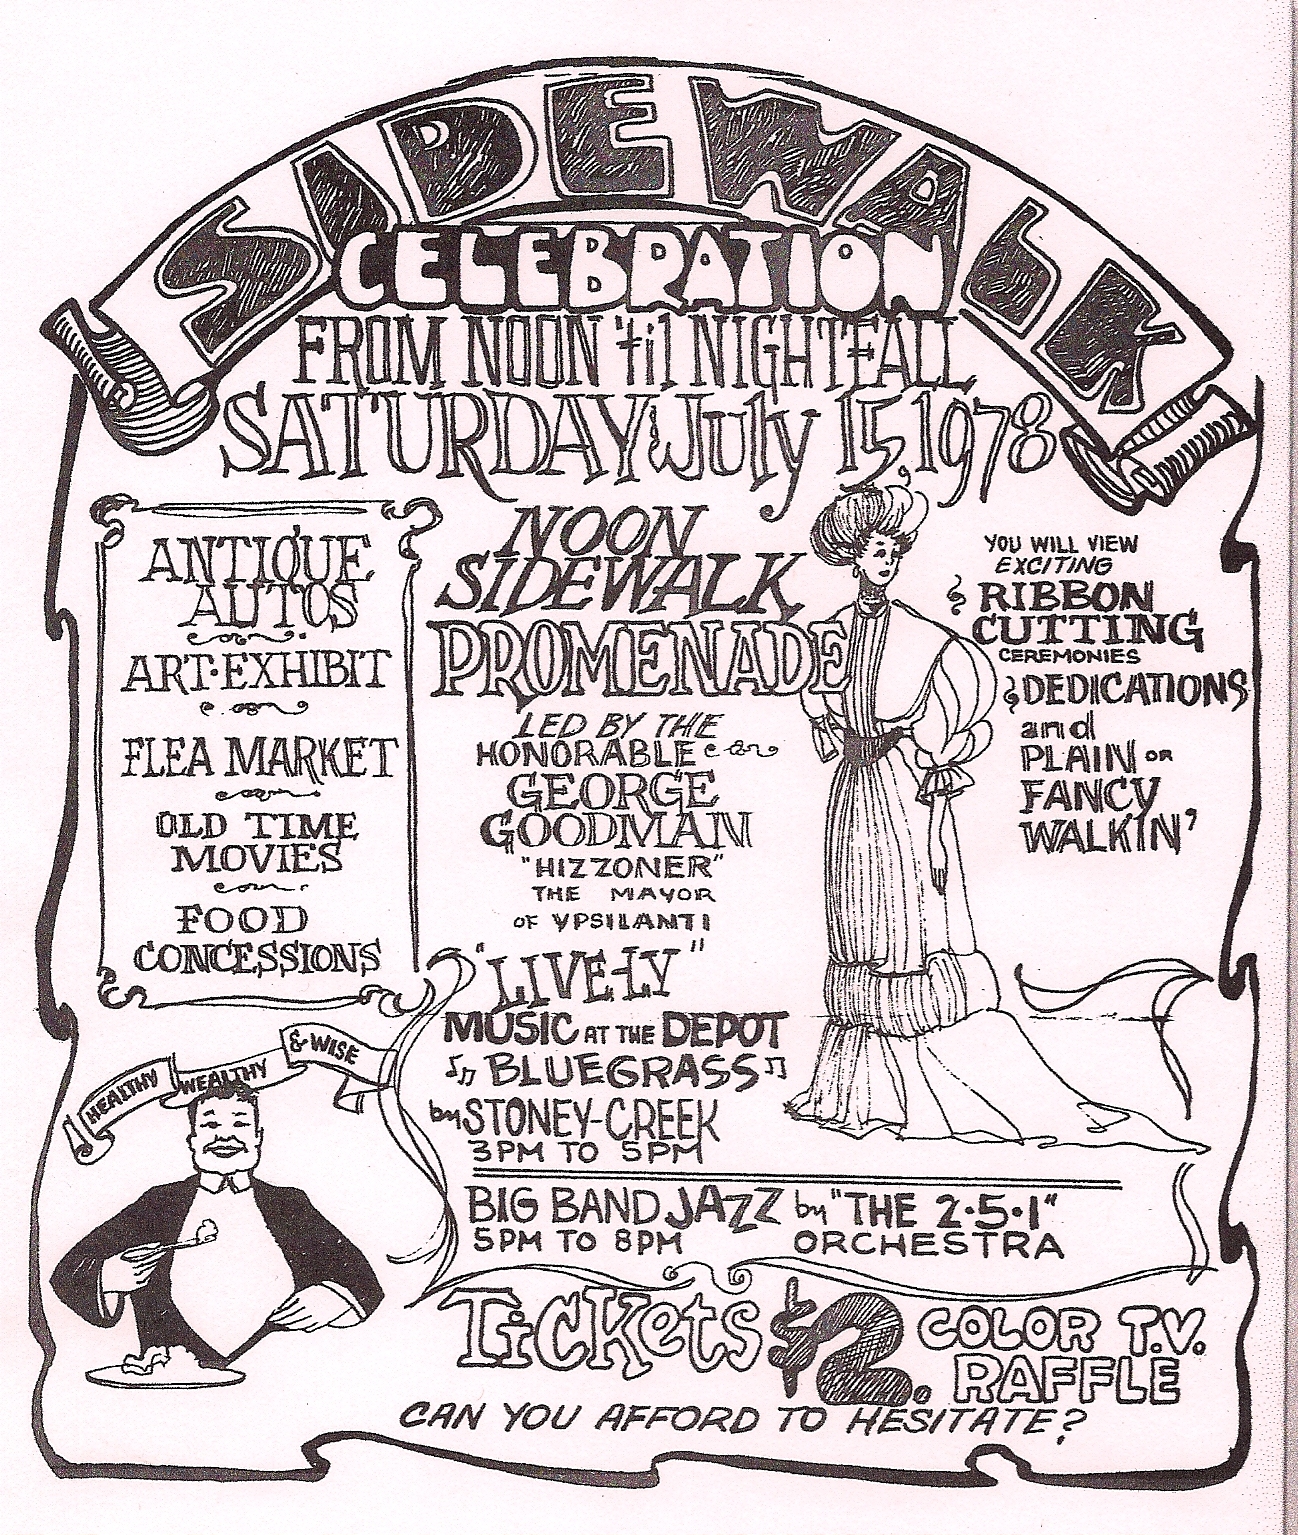 SIDEWALK
CELEBRATION
FROM NOON 'til NIGHTFALL
SATURDAY, July 15, 1978
ANTIQUE
AUTOS
ART·EXHIBIT
FLEA MARKET
OLD TIME
MOVIES
FOOD
CONCESSIONS
NOON
SIDEWALK
PROMENADE
LED BY THE
HONORABLE
GEORGE
GOODMAN
"HIZZONER"
THE MAYOR
OF YPSILANTI
YOU WILL VIEW
EXCITING
RIBBON
CUTTING
CEREMONIES
DEDICATIONS
and
PLAIN OR
FANCY
WALKIN'
"LIVE-LY"
MUSIC AT THE DEPOT
BLUEGRASS
by STONEY-CREEK
3PM TO 5PM
BIG BAND JAZZ by "THE 2·5·1"
5PM TO 8PM ORCHESTRA
HEALTHY WEALTHY & WISE
TICKETS $2. COLOR T.V.
RAFFLE
CAN YOU AFFORD TO HESITATE?